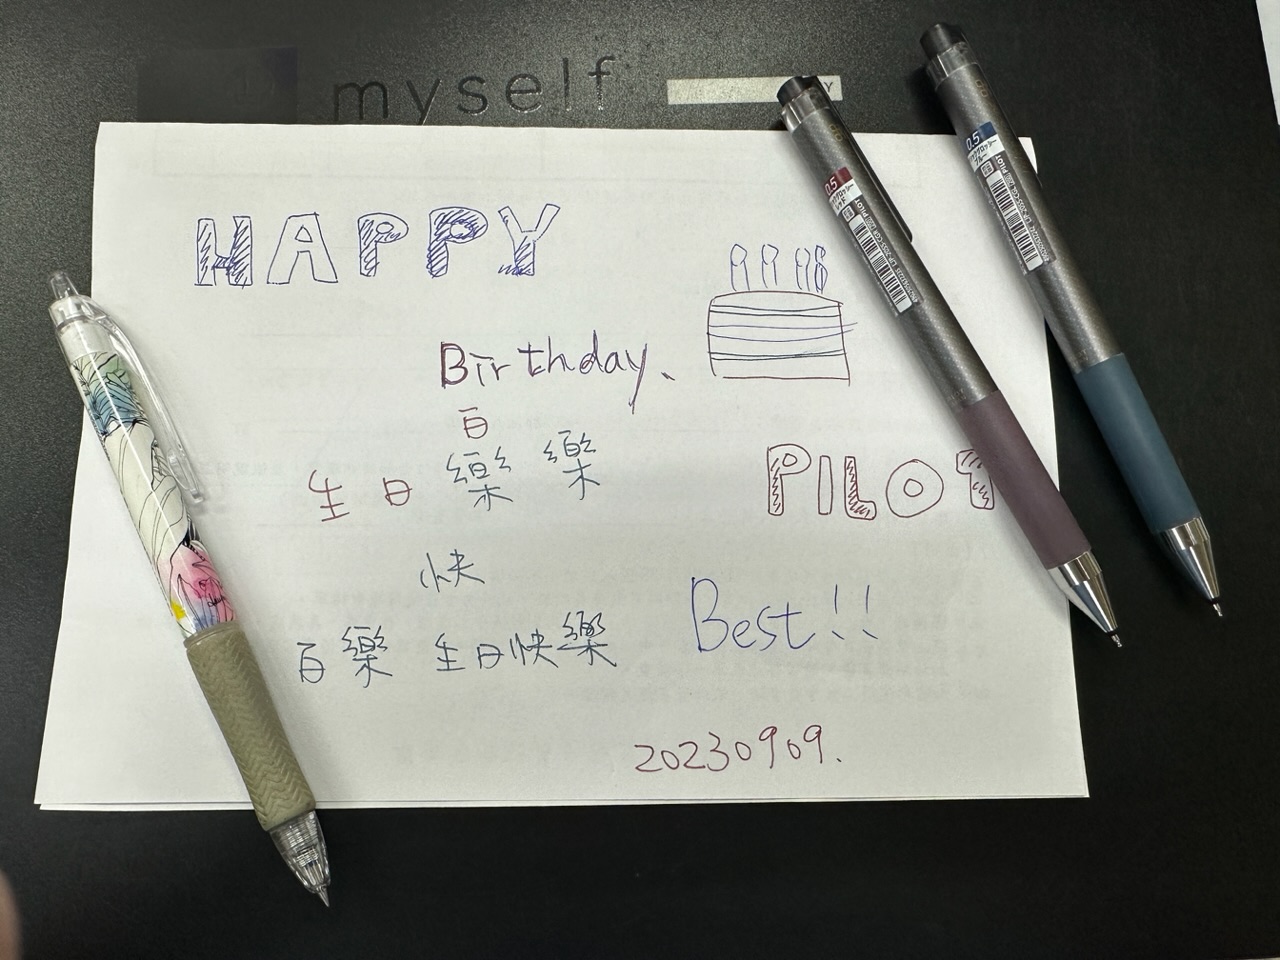 myself
HAPPY
Birthday、
百
生日樂樂
快
百樂 生日快樂
PILOT
Best!!
20230909.
0.5
PILOT
0.5
PILOT